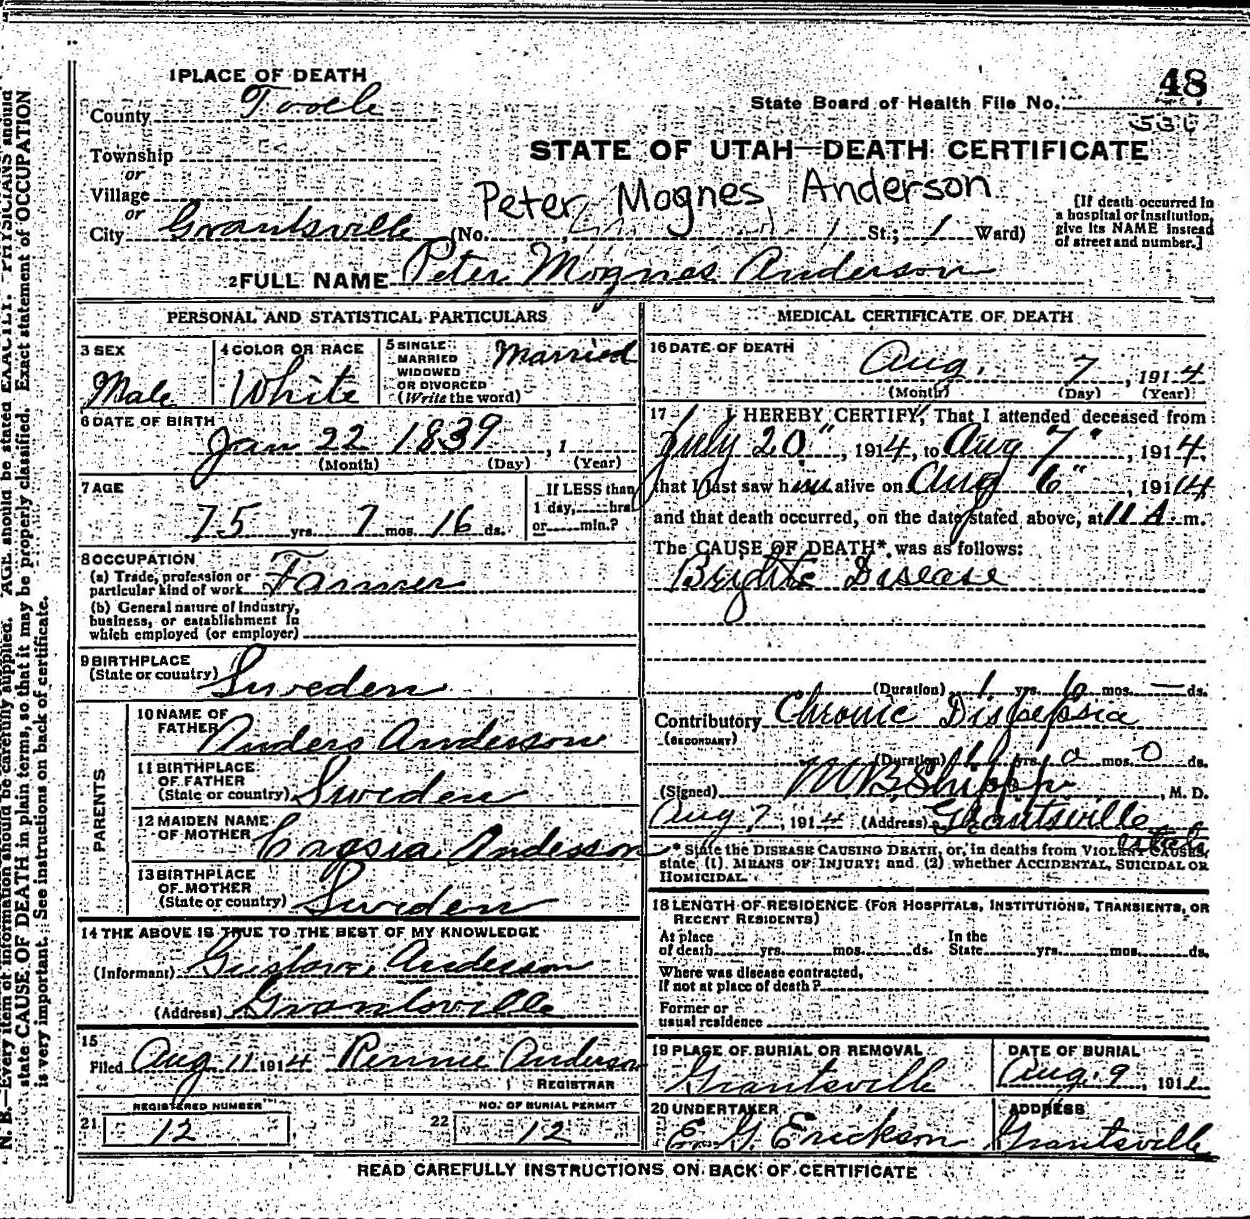 1 PLACE OF DEATH
48
County Tooele
State Board of Health File No.
536
Township
STATE OF UTAH—DEATH CERTIFICATE
or
Village
Peter Mognes Anderson
or
City Grantsville (No. St.; 1 Ward)
[If death occurred in
a hospital or institution,
give its NAME instead
of street and number.]
2 FULL NAME Peter Mognes Anderson
PERSONAL AND STATISTICAL PARTICULARS
3 SEX
Male
4 COLOR OR RACE
White
5 SINGLE
MARRIED
WIDOWED
OR DIVORCED
(Write the word)
Married
6 DATE OF BIRTH
Jan 22 1839, 1
(Month) (Day) (Year)
7 AGE
75 yrs. 7 mos. 16 ds.
If LESS than
1 day, hrs.
or min.?
8 OCCUPATION
(a) Trade, profession or
particular kind of work Farmer
(b) General nature of Industry,
business, or establishment in
which employed (or employer)
9 BIRTHPLACE
(State or country) Sweden
PARENTS
10 NAME OF
FATHER Anders Anderson
11 BIRTHPLACE
OF FATHER
(State or country) Sweden
12 MAIDEN NAME
OF MOTHER Anderson
13 BIRTHPLACE
OF MOTHER
(State or country) Sweden
14 THE ABOVE IS TRUE TO THE BEST OF MY KNOWLEDGE
(Informant) Gustave Anderson
(Address) Grantsville
15
Filed Aug 11 1914 Anderson
REGISTRAR
21 REGISTERED NUMBER
12
22 NO. OF BURIAL PERMIT
12
MEDICAL CERTIFICATE OF DEATH
16 DATE OF DEATH
Aug. 7, 1914
(Month) (Day) (Year)
17 I HEREBY CERTIFY, That I attended deceased from
July 20", 1914, to Aug 7", 1914,
that I last saw him alive on Aug "6", 1914
and that death occurred, on the date stated above, at 11 A. m.
The CAUSE OF DEATH* was as follows:
Brights Disease
(Duration) 1 yrs. 10 mos. — ds.
Contributory Chronic Dispepsia
(SECONDARY)
(Duration) yrs. 0 mos. 0 ds.
(Signed) Shipp, M. D.
Aug 7, 1914 (Address) Grantsville
Utah
* State the DISEASE CAUSING DEATH, or, in deaths from VIOLENT CAUSES,
state (1) MEANS OF INJURY; and (2) whether ACCIDENTAL, SUICIDAL OR
HOMICIDAL.
18 LENGTH OF RESIDENCE (FOR HOSPITALS, INSTITUTIONS, TRANSIENTS, OR
RECENT RESIDENTS)
At place
of death yrs. mos. ds.
In the
State yrs. mos. ds.
Where was disease contracted,
if not at place of death?
Former or
usual residence
19 PLACE OF BURIAL OR REMOVAL
Grantsville
DATE OF BURIAL
Aug. 9, 191
20 UNDERTAKER
E. G. Erickson
ADDRESS
Grantsville
READ CAREFULLY INSTRUCTIONS ON BACK OF CERTIFICATE
N. B.—Every item of information should be carefully supplied. AGE should be stated EXACTLY. PHYSICIANS should
state CAUSE OF DEATH in plain terms, so that it may be properly classified. Exact statement of OCCUPATION
is very important. See instructions on back of certificate.